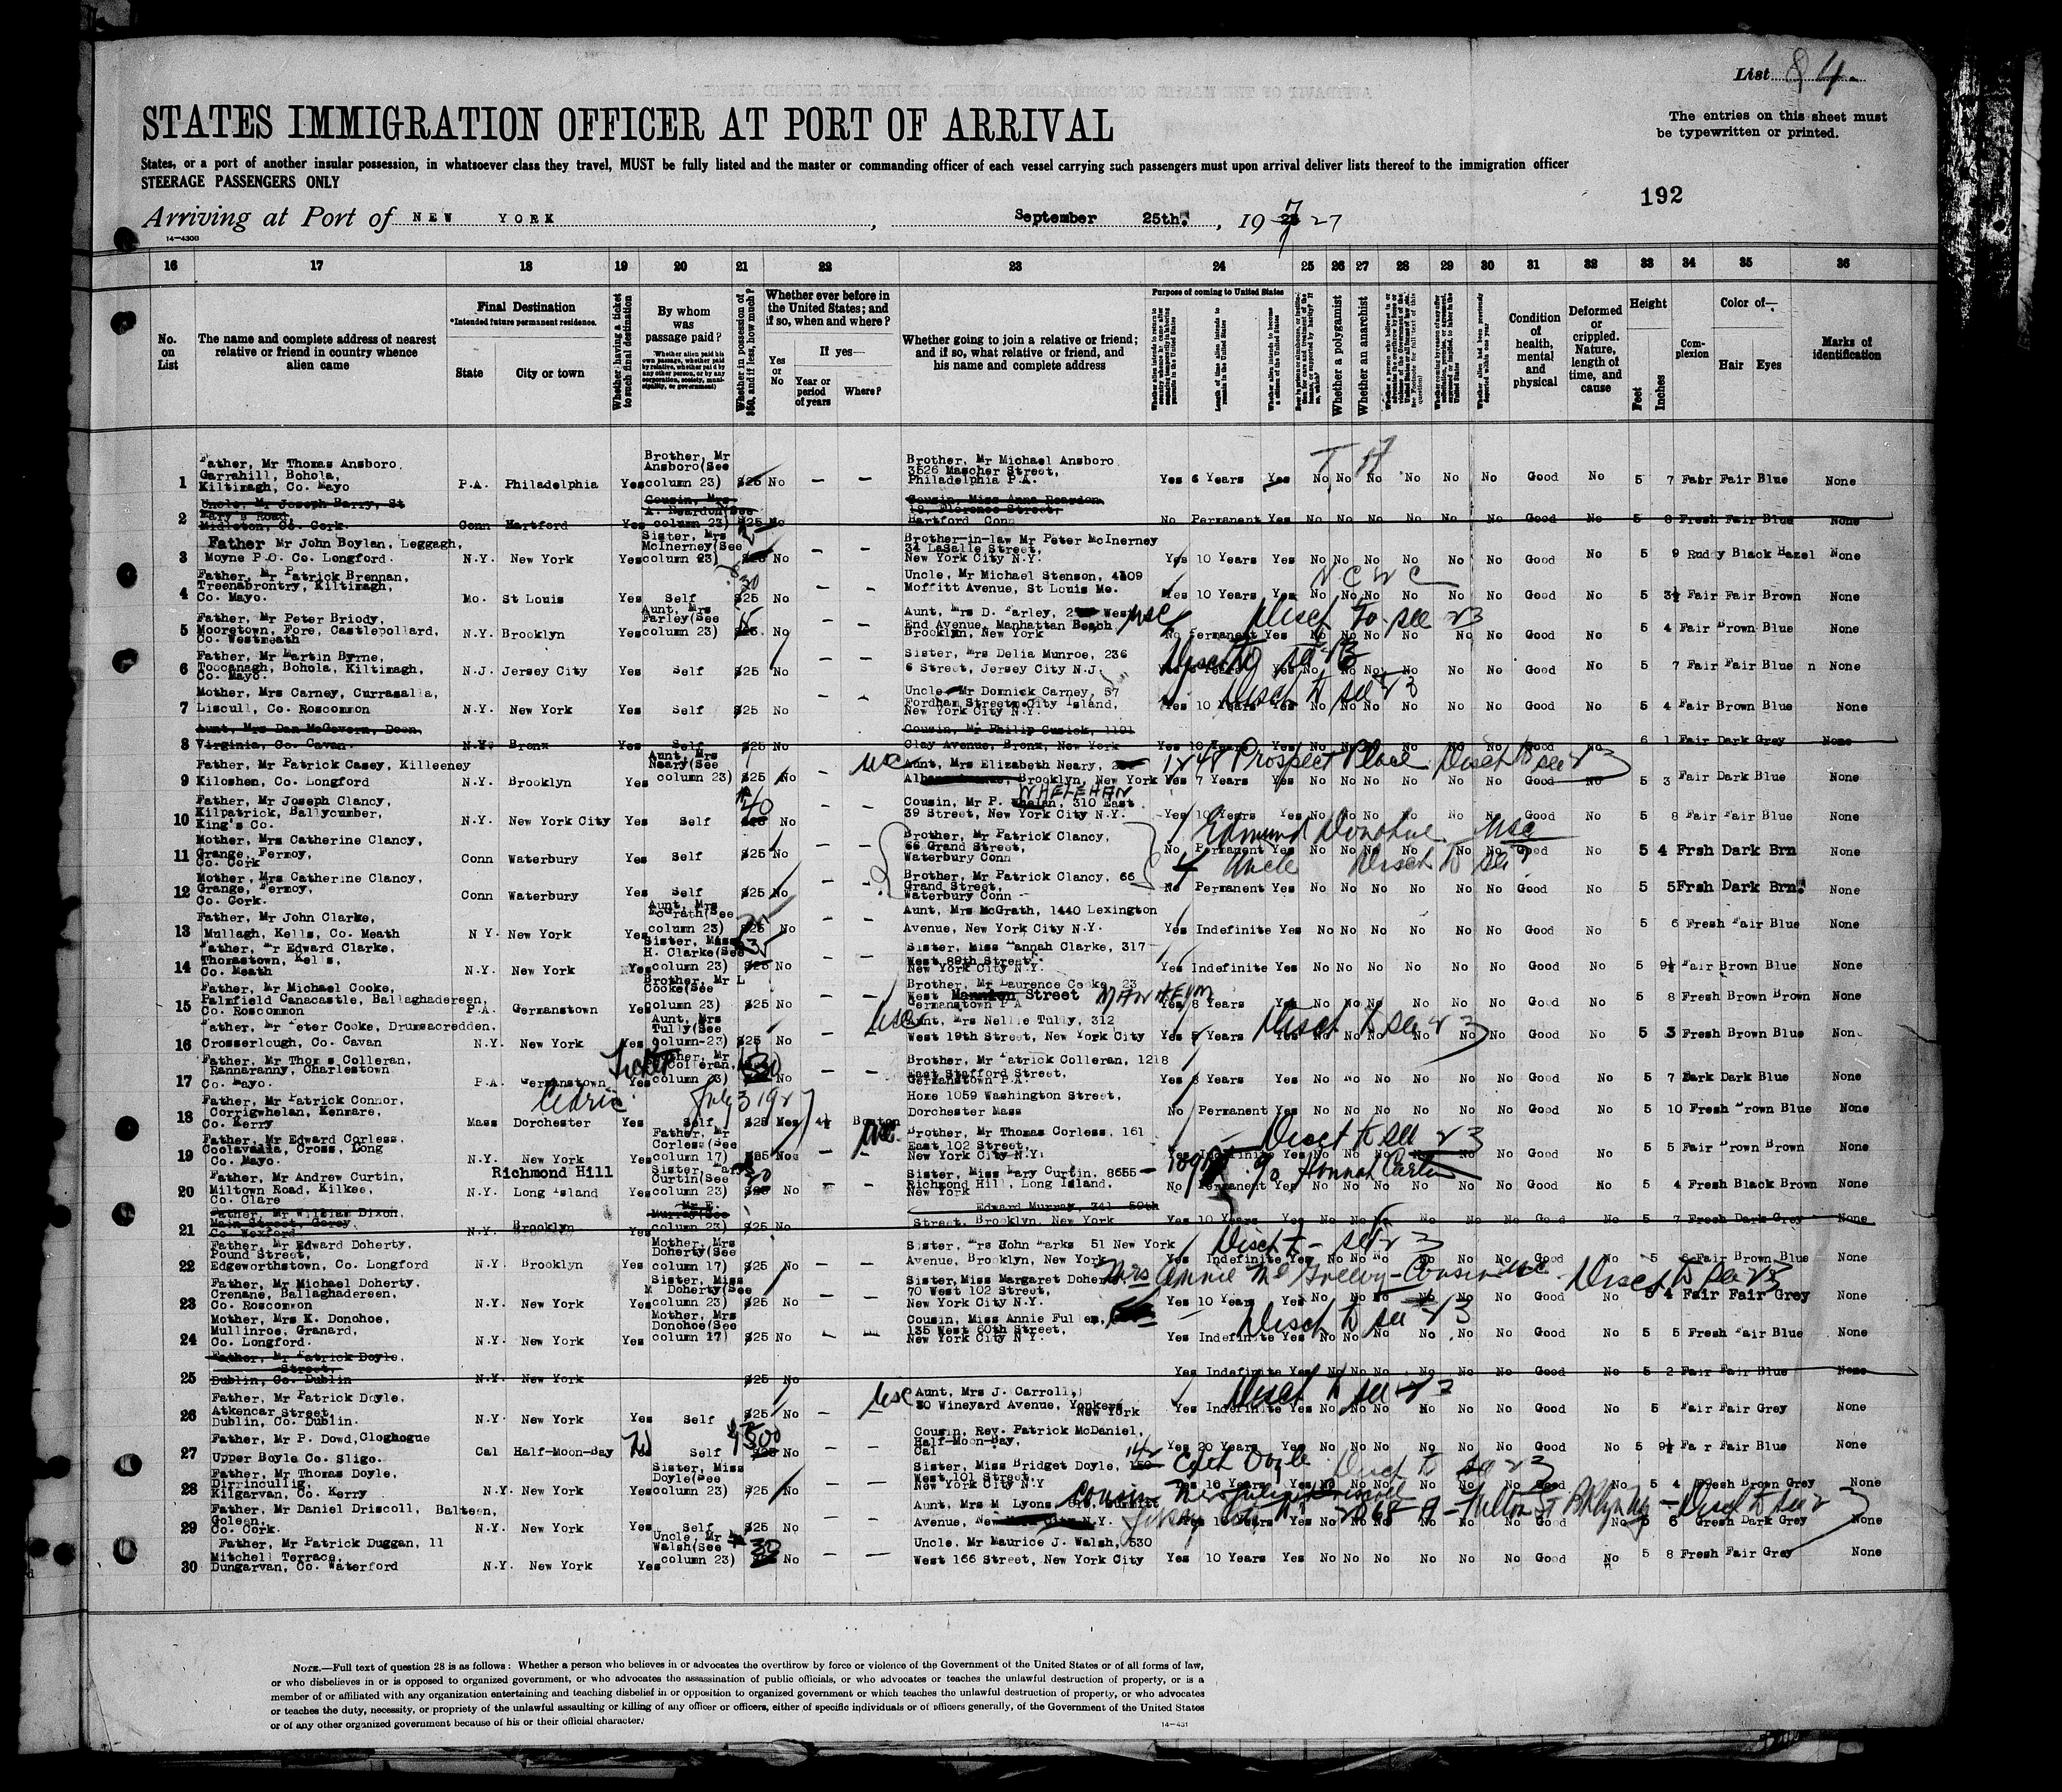 List 84.
STATES IMMIGRATION OFFICER AT PORT OF ARRIVAL
The entries on this sheet must
be typewritten or printed.
States, or a port of another insular possession, in whatsoever class they travel, MUST be fully listed and the master or commanding officer of each vessel carrying such passengers must upon arrival deliver lists thereof to the immigration officer
STEERAGE PASSENGERS ONLY
192
Arriving at Port of NEW YORK, September 25th, 19 27
14-430B
16 17 18 19 20 21 22 23 24 25 26 27 28 29 30 31 32 33 34 35 36
No. on List
The name and complete address of nearest relative or friend in country whence alien came
Final Destination
*Intended future permanent residence.
State
City or town
Whether having a ticket to such final destination
By whom was passage paid?
Whether in possession of $50, and if less, how much?
Whether ever before in the United States; and if so, when and where?
Yes or No
If yes—
Year or period of years
Where?
Whether going to join a relative or friend; and if so, what relative or friend, and his name and complete address
Purpose of coming to United States
Length of time alien intends to remain in the United States
Whether a polygamist
Whether an anarchist
Condition of health, mental and physical
Deformed or crippled. Nature, length of time, and cause
Height
Feet
Inches
Complexion
Color of—
Hair Eyes
Marks of identification
1 Father, Mr Thomas Ansboro, Garrahill, Bohola, Kiltimagh, Co. Mayo P.A. Philadelphia Yes Brother, Mr Ansboro(See column 23) $25 No — — Brother, Mr Michael Ansboro 3526 Mascher Street, Philadelphia P.A. Yes 6 Years Yes No No No No No No Good No 5 7 Fair Fair Blue None
2 Uncle, Mr Joseph Barry, St Mary's Road Midleton, Co. Cork. Conn Hartford Yes Cousin, Mrs A. Reardon(See column 23) $25 No Cousin, Miss Anna Reardon 19, Florence Street, Hartford Conn No Permanent Yes No No No No No No Good No 5 8 Fresh Fair Blue None
3 Father Mr John Boylan, Leggagh, Moyne P.O. Co. Longford. N.Y. New York Yes Sister, Mrs McInerney(See column 23) No — — Brother-in-law Mr Peter McInerney 34 LaSalle Street, New York City N.Y. Yes 10 Years Yes No No No No No No Good No 5 9 Ruddy Black Hazel None
4 Father, Mr Patrick Brennan, Treenabrontry, Kiltimagh, Co. Mayo. Mo. St Louis Yes Self 30 $25 No — — Uncle, Mr Michael Stenson, 4109 Moffitt Avenue, St Louis Mo. Yes 10 Years Yes No No No No No No Good No 5 3½ Fair Fair Brown None
N C W C
5 Father, Mr Peter Briody, Mooretown, Fore, Castlepollard, Co. Westmeath N.Y. Brooklyn Yes Aunt, Mrs Farley(See column 23) 15 $25 No — — Aunt, Mrs D. Farley, West End Avenue, Manhattan Beach Brooklyn, New York No Permanent Yes No No No No No No Good No 5 4 Fair Brown Blue None
Disch to see 23
6 Father, Mr Martin Byrne, Toocanagh, Bohola, Kiltimagh, Co. Mayo. N.J. Jersey City Yes Self $25 No — — Sister, Mrs Delia Munroe, 236 6 Street, Jersey City N.J. Years Yes No No No No No No Good No 5 7 Fair Fair Blue n None
Disch to see 23
7 Mother, Mrs Carney, Currasalla, Liscull, Co. Roscommon N.Y. New York Yes Self $25 No — — Uncle Mr Dominick Carney, 57 Fordham Street City Island, New York City N.Y. Yes 10 Years Yes No No No No No No Good No 5 4 Fair Brown Blue None
Disch to see 23
8 Aunt, Mrs Dan McGovern, Doon, Virginia, Co. Cavan. N.Y. Bronx Yes Self $25 No Cousin, Mr Philip Cusick, 1191 Clay Avenue, Bronx, New York Yes 10 Years Yes No No No No No No Good No 6 1 Fair Dark Grey None
9 Father, Mr Patrick Casey, Killeeney Kiloshen, Co. Longford N.Y. Brooklyn Yes Aunt, Mrs Neary(See column 23) $25 No — — Aunt, Mrs Elizabeth Neary, Brooklyn, New York Yes 7 Years Yes No No No No No No Good No 5 3 Fair Dark Blue None
1248 Prospect Place Disch to see 23
10 Father, Mr Joseph Clancy, Kilpatrick, Ballycumber, King's Co. N.Y. New York City Yes Self 40 $25 No — — Cousin, Mr P. Whelan, 310 East 39 Street, New York City N.Y. Yes 10 Years Yes No No No No No No Good No 5 8 Fair Fair Blue None
WHELEHAN
11 Mother, Mrs Catherine Clancy, Grange, Fermoy, Co. Cork Conn Waterbury Yes Self $25 No — — Brother, Mr Patrick Clancy, 66 Grand Street, Waterbury Conn No Permanent Yes No No No No No No Good No 5 4 Frsh Dark Brn None
Edmund Donohue Usc Uncle Disch to see
12 Mother, Mrs Catherine Clancy, Grange, Fermoy, Co. Cork. Conn Waterbury Yes Self $25 No — — Brother, Mr Patrick Clancy, 66 Grand Street, Waterbury Conn No Permanent Yes No No No No No No Good No 5 5 Frsh Dark Brn. None
13 Father, Mr John Clarke, Mullagh, Kells, Co. Meath N Y. New York Yes Aunt, Mrs McGrath(See column 23) $25 No — — Aunt, Mrs McGrath, 1440 Lexington Avenue, New York City N.Y. Yes Indefinite Yes No No No No No No Good No 5 6 Fresh Fair Blue None
14 Father, Mr Edward Clarke, Thomastown, Kells, Co. Meath N.Y. New York Yes Sister, Miss H. Clarke(See column 23) 35 $25 No — — Sister, Miss Hannah Clarke, 317 West 89th Street, New York City N.Y. Yes Indefinite Yes No No No No No No Good No 5 9½ Fair Brown Blue None
15 Father, Mr Michael Cooke, Palmfield Canacastle, Ballaghadereen, Co. Roscommon P.A. Germanstown Yes Brother, Mr L Cooke(See column 23) $25 No — — Brother, Mr Laurence Cooke, 23 West Mannion Street Germanstown P A Yes 8 Years Yes No No No No No No Good No 5 8 Fresh Brown Brown None
MANHEIM
16 Father, Mr Peter Cooke, Drumsacredden. Crosserlough, Co. Cavan N.Y. New York Yes Aunt, Mrs Tully(See column-23) $25 No — — Aunt, Mrs Nellie Tully, 312 West 19th Street, New York City Yes 5 Years Yes No No No No No No Good No 5 3 Fresh Brown Blue None
Usc Disch to see 23
17 Father, Mr Thomas Colleran, Rannaranny, Charlestown Co. Mayo. P.A. Germanstown Yes Brother, Mr Colleran, column 23) 30 No Brother, Mr Patrick Colleran, 1218 East Stafford Street, Germanstown P.A. Yes 8 Years Yes No No No No No No Good No 5 7 Dark Dark Blue None
Ticket
Cedric July 3 1927
18 Father, Mr Patrick Connor, Corrigwhelan, Kenmare, Co. Kerry Mass Dorchester Yes Self $25 Yes 4½ Boston Home 1059 Washington Street, Dorchester Mass No Permanent Yes No No No No No No Good No 5 10 Fresh Brown Blue None
19 Father, Mr Edward Corless, Coolavalla, Cross, Long Co. Mayo. N.Y. New York Yes Father, Mr Corless(See column 17) $25 No Brother, Mr Thomas Corless, 161 East 102 Street, New York City N.Y. Yes Indefinite Yes No No No No No No Good No 5 5 Fair Brown Brown None
Disch to see 23
20 Father, Mr Andrew Curtin, Miltown Road, Kilkee, Co. Clare N.Y. Richmond Hill Long Island Yes Sister, Mary Curtin(See column 23) $25 No — — Sister, Miss Mary Curtin, 8655 Richmond Hill, Long Island, New York No Permanent Yes No No No No No No Good No 5 4 Fresh Black Brown None
21 Father, Mr William Dixon, Main Street, Gorey Co Wexford N.Y. Brooklyn Yes Mr E. Murray(See column 23) $25 No Edward Murray, 341 59th Street, Brooklyn, New York Yes 10 Years Yes No No No No No No Good No 5 7 Fresh Dark Grey None
22 Father, Mr Edward Doherty, Pound Street, Edgeworthstown, Co. Longford N.Y. Brooklyn Yes Mother, Mrs Doherty(See column 17) $25 No — — Sister, Mrs John Parks 51 New York Avenue, Brooklyn, New York Yes Indefinite Yes No No No No No No Good No 5 6 Fair Brown Blue None
Disch to see 23
23 Father, Mr Michael Doherty, Crenane, Ballaghadereen, Co. Roscommon N.Y. New York Yes Sister, Miss M Doherty(See column 23) $25 No — — Sister, Miss Margaret Doherty 70 West 102 Street, New York City N.Y. Yes 10 Years Yes No No No No No No Good No 5 4 Fair Fair Grey None
Mrs Annie Mc Greevy - Cousin Usc Disch to see 23
24 Mother, Mrs K. Donohoe, Mullinroe, Granard, Co. Longford. N.Y. New York Yes Mother, Mrs Donohoe(See column 17) $25 No — — Cousin, Miss Annie Fullem, 135 West 60th Street, New York City N.Y. Yes Indefinite Yes No No No No No No Good No 5 5 Fresh Fair Blue None
Disch to see 23
25 Father, Mr Patrick Doyle, Street, Dublin, Co. Dublin N.Y. New York $25 No Yes Indefinite Yes No No No No No No Good No 5 2 Fair Fair Blue None
26 Father, Mr Patrick Doyle, Atkencar Street, Dublin, Co. Dublin. N.Y. New York Yes Self $25 No — — Aunt, Mrs J. Carroll, 30 Wineyard Avenue, Yonkers, New York Yes Indefinite Yes No No No No No No Good No 5 Fair Fair Grey None
Usc Disch to see 23
27 Father, Mr P. Dowd, Cloghogue Upper Boyle Co. Sligo. Cal Half-Moon-Bay Self $25 No — — Cousin, Rev. Patrick McDaniel, Half-Moon-Bay, Cal Yes 20 Years Yes No No No No No No Good No 5 9½ Fair Fair Blue None
28 Father, Mr Thomas Doyle, Dirrincullig, Kilgarvan, Co. Kerry N.Y. New York Yes Sister, Miss Doyle(See column 23) $25 No — — Sister, Miss Bridget Doyle, West 101 Street, New York City N.Y Yes 10 Years Yes No No No No No No Good No 5 4 Fresh Brown Grey None
Disch to see 23
29 Father, Mr Daniel Driscoll, Balteen, Goleen, Co. Cork. N.Y. New York Yes Self $25 No — — Aunt, Mrs M Lyons, Avenue, N.Y. Yes No No Good No 5 6 Fresh Dark Grey None
Cousin 2068 A - Fulton St Bklyn NY - Disch to see 23
30 Father, Mr Patrick Duggan, 11 Mitchell Terrace, Dungarvan, Co. Waterford N.Y. New York Yes Uncle, Mr Walsh(See column 23) 30 No — — Uncle, Mr Maurice J. Walsh, 530 West 166 Street, New York City Yes 10 Years Yes No No No No No No Good No 5 8 Fresh Fair Gray None
NOTE.—Full text of question 28 is as follows: Whether a person who believes in or advocates the overthrow by force or violence of the Government of the United States or of all forms of law,
or who disbelieves in or is opposed to organized government, or who advocates the assassination of public officials, or who advocates or teaches the unlawful destruction of property, or is a
member of or affiliated with any organization entertaining and teaching disbelief in or opposition to organized government or which teaches the unlawful destruction of property, or who advocates
or teaches the duty, necessity, or propriety of the unlawful assaulting or killing of any officer or officers, either of specific individuals or of officers generally, of the Government of the United States
or of any other organized government because of his or their official character.
14-431